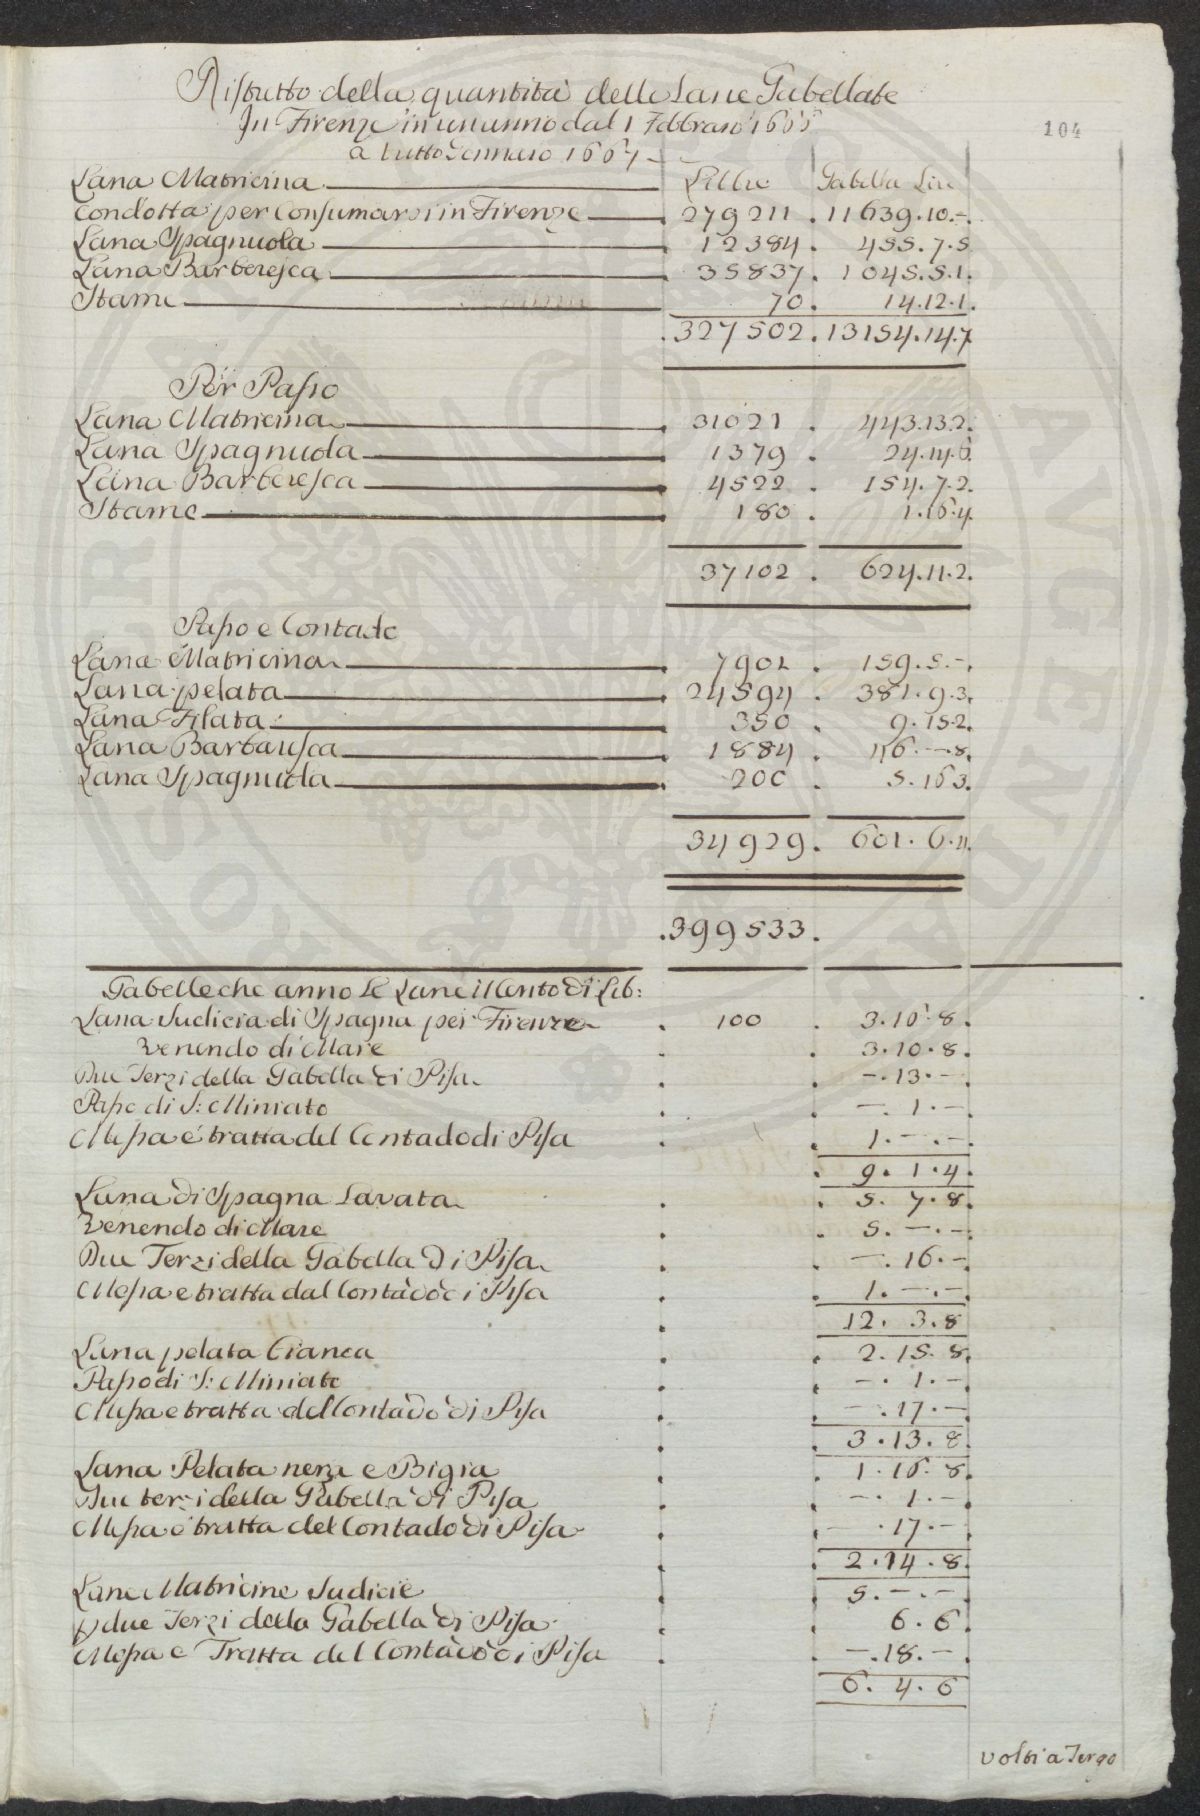 Ristretto della quantita delle Lane Gabellate
In Firenze in un anno dal 1 Febbraio 1666
a tutto Gennaio 1667
104
Lana Matricina Libbre Gabella Lire
Condotta per Consumarsi in Firenze 279211 . 11639.10.-.
Lana Spagnuola 12384 . 455.7.5
Lana Barberesca 35837 . 1045.5.1.
Stame 70 . 14.12.1.
.327502 . 13154.14.7
Per Passo
Lana Matricina 31021 . 443.13.2.
Lana Spagnuola 1379 . 24.14.6
Lana Barberesca 4522 . 154.7.2.
Stame 180 . 1.16.4
37102 . 624.11.2.
Passo e Contado
Lana Matricina 7901 . 159.5.-.
Lana pelata 24594 . 381.9.3.
Lana Filata 350 . 9.15.2.
Lana Barbaresca 1884 . 46.-.8.
Lana Spagnuola 200 . 5.16.3.
34929 . 601.6.4.
.399533.
Gabelle che anno Le Lane il Cento di Lib:
Lana Sudicia di Spagna per Firenze . 100 . 3.16.8.
Venendo di Mare . 3.10.8.
Due Terzi della Gabella di Pisa . -.13.-
Passo di S: Miniato . -.1.-
Messa e tratta del Contado di Pisa . 1.-.-.
. 9.1.4.
Lana di Spagna Lavata . 5.7.8.
Venendo di Mare . 5.-.-.
Due Terzi della Gabella Di Pisa . -.16.-
Messa e tratta dal Contado di Pisa . 1.-.-.
12.3.8
Lana pelata bianca . 2.15.8.
Passo di S: Miniato . -.1.-
Messa e tratta del Contado di Pisa . -.17.-
. 3.13.8.
Lana Pelata nera e Bigia . 1.16.8.
Due terzi della Gabella di Pisa . -.1.-
Messa e tratta del Contado di Pisa . -.17.-
. 2.14.8.
Lane Matricine Sudicie . 5.-.-
due Terzi della Gabella di Pisa . 6.6.
Messa e Tratta del Contado di Pisa . -.18.-
6.4.6
volti a Tergo